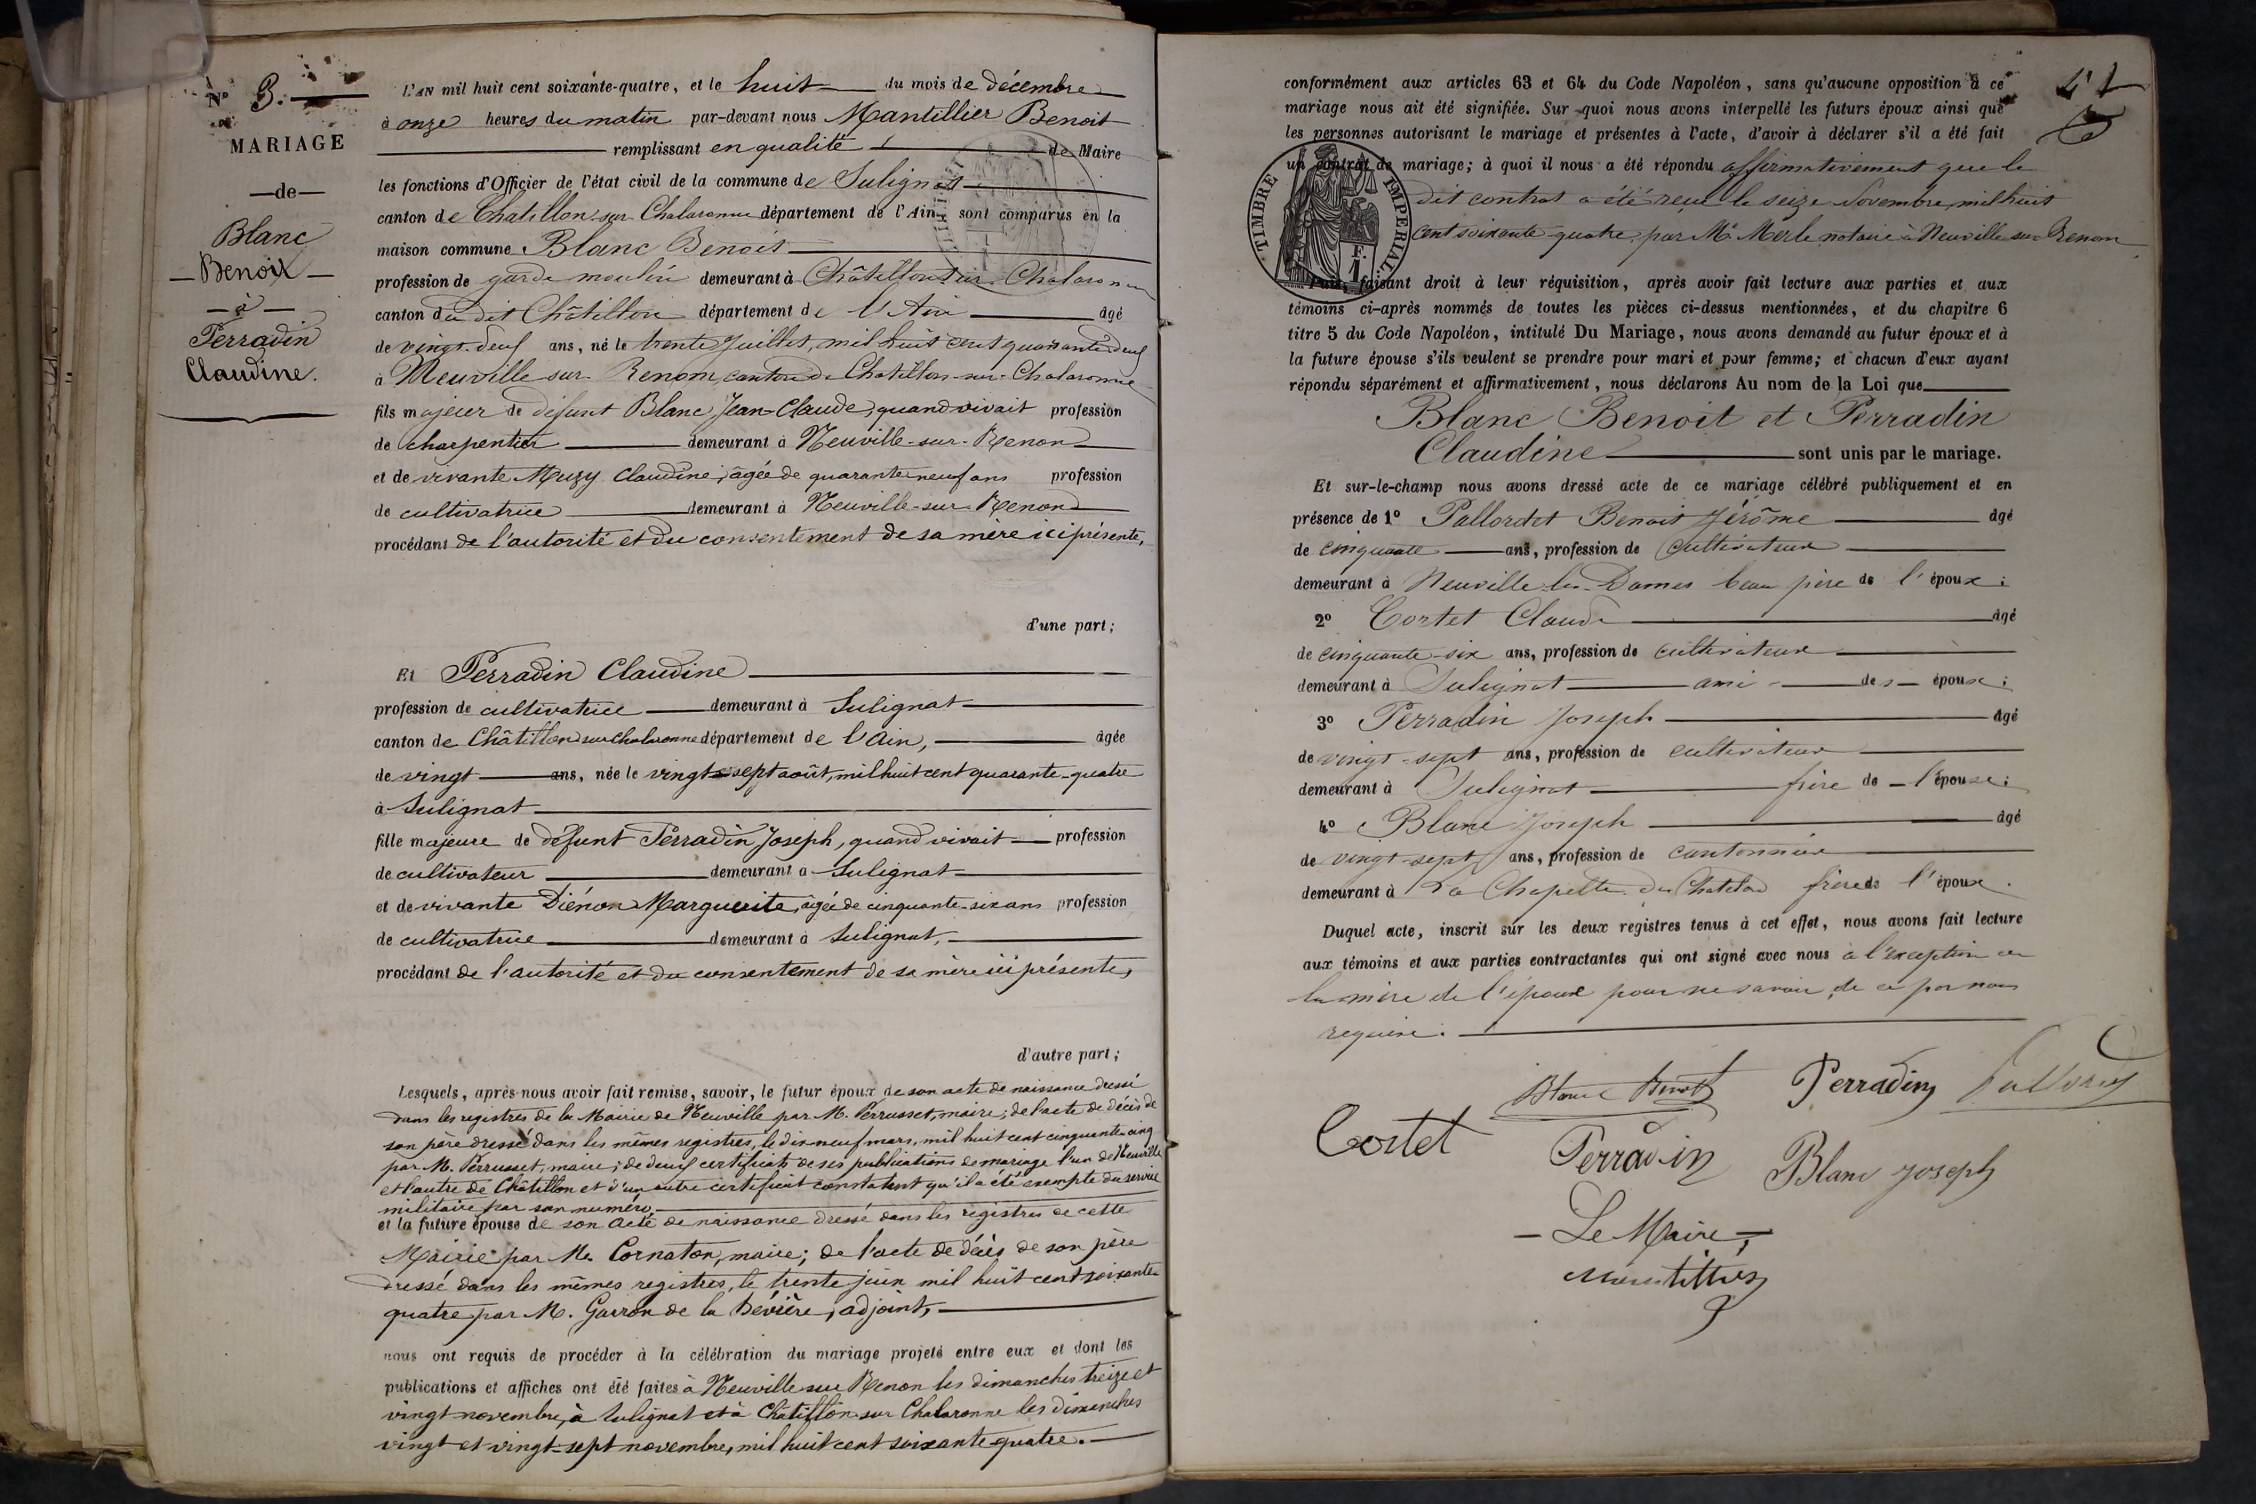 N° 3.
MARIAGE
—de—
Blanc
Benoit
à
Perradin
Claudine.
L'AN mil huit cent soixante-quatre, et le huit du mois de décembre
à onze heures du matin par-devant nous Mantillier Benoit
remplissant en qualité de Maire
les fonctions d'Officier de l'état civil de la commune de Sulignat
canton de Chatillon-sur-Chalaronne département de l'Ain, sont comparus en la
maison commune Blanc Benoit
profession de garde moulin demeurant à Châtillon sur Chalaronne
canton du dit Châtillon département de l'Ain âgé
de vingt-deux ans, né le trente Juillet, mil huit cent quarante deux
à Neuville-sur-Renom, canton de Chatillon-sur-Chalaronne
fils majeur de défunt Blanc Jean-Claude, quand vivait profession
de charpentier demeurant à Neuville-sur-Renon
et de vivante Muzy Claudine, âgée de quarante-neuf ans profession
de cultivatrice demeurant à Neuville-sur-Renon
procédant de l'autorité et du consentement de sa mère ici présente,
d'une part;
Et Perradin Claudine
profession de cultivatrice demeurant à Sulignat
canton de Châtillon sur Chalaronne département de l'Ain, âgée
de vingt ans, née le vingt-sept août, mil huit cent quarante-quatre
à Sulignat
fille majeure de défunt Perradin Joseph, quand vivait profession
de cultivateur demeurant à Sulignat
et de vivante Diénon Marguerite, âgée de cinquante-six ans profession
de cultivatrice demeurant à Sulignat,
procédant de l'autorité et du consentement de sa mère ici présente,
d'autre part;
Lesquels, après nous avoir fait remise, savoir, le futur époux de son acte de naissance dressé
dans les registres de la Mairie de Neuville par M. Perrusset, maire; de l'acte de décès de
son père dressé dans les mêmes registres, le dix-neuf mars, mil huit cent cinquante-cinq
par M. Perrusset, maire; de deux certificats de ses publications de mariage l'un de Neuville
et l'autre de Châtillon et d'un autre certificat constatant qu'il a été exempté du service
militaire par son numéro.
et la future épouse de son acte de naissance dressé dans les registres de cette
Mairie par M. Cornaton, maire; de l'acte de décès de son père
dressé dans les mêmes registres, le trente juin mil huit cent soixante-
quatre par M. Garron de la Bévière, adjoint,
nous ont requis de procéder à la célébration du mariage projeté entre eux et dont les
publications et affiches ont été faites à Neuville sur Renon les dimanches treize et
vingt novembre, à Sulignat et à Châtillon sur Chalaronne les dimanches
vingt et vingt-sept novembre, mil huit cent soixante quatre.
conformément aux articles 63 et 64 du Code Napoléon, sans qu'aucune opposition à ce
mariage nous ait été signifiée. Sur quoi nous avons interpellé les futurs époux ainsi que
les personnes autorisant le mariage et présentes à l'acte, d'avoir à déclarer s'il a été fait
un contrat de mariage; à quoi il nous a été répondu affirmativement que le
dit contrat a été reçu le seize Novembre mil huit
cent soixante-quatre, par Me Merle notaire à Neuville sur Renom
TIMBRE IMPERIAL.
1 F.
Puis, faisant droit à leur réquisition, après avoir fait lecture aux parties et aux
témoins ci-après nommés de toutes les pièces ci-dessus mentionnées, et du chapitre 6
titre 5 du Code Napoléon, intitulé Du Mariage, nous avons demandé au futur époux et à
la future épouse s'ils veulent se prendre pour mari et pour femme; et chacun d'eux ayant
répondu séparément et affirmativement, nous déclarons Au nom de la Loi que
Blanc Benoit et Perradin
Claudine sont unis par le mariage.
Et sur-le-champ nous avons dressé acte de ce mariage célébré publiquement et en
présence de 1° Pallordet Benoit Jérôme âgé
de cinquante ans, profession de cultivateur
demeurant à Neuville-les-Dames beau père de l'époux;
2° Cortet Claude âgé
de cinquante-six ans, profession de cultivateur
demeurant à Sulignat ami des époux;
3° Perradin Joseph âgé
de vingt-sept ans, profession de cultivateur
demeurant à Sulignat frère de l'épouse;
4° Blanc Joseph âgé
de vingt-sept ans, profession de cantonnier
demeurant à La Chapelle du Chatelard frère de l'époux.
Duquel acte, inscrit sur les deux registres tenus à cet effet, nous avons fait lecture
aux témoins et aux parties contractantes qui ont signé avec nous à l'exception de
la mère de l'époux pour ne savoir, de ce par nous
requise.
Blanc Benoit Perradin
Cortet
Perradin Blanc Joseph
Le Maire,
Mantillier